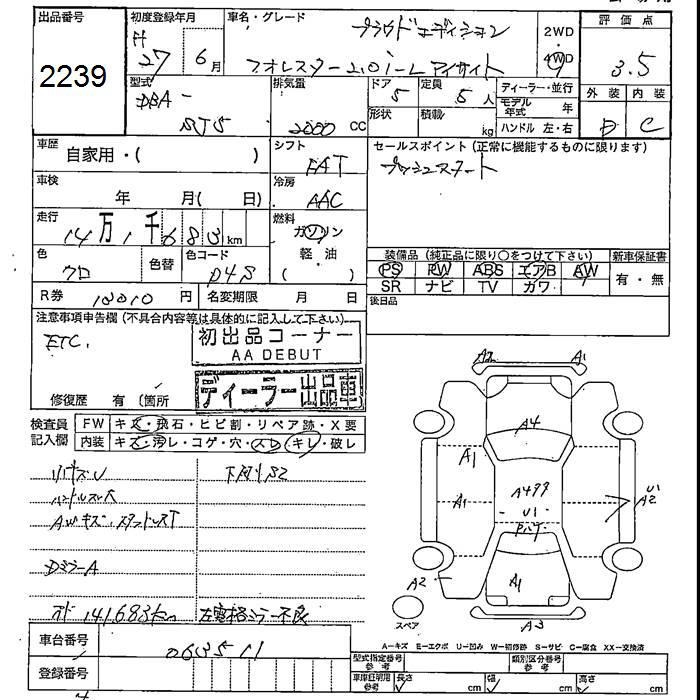 出品番号
2239
初度登録年月
H
27 6月
車名・グレード
ブラウドエディション
フォレスター 2.0i-L アイサイト
2WD
4WD
評価点
3.5
外装 内装
D C
型式
DBA-
SJ5
排気量
2000 CC
ドア 5
定員 5人
形状
積載 kg
ディーラー・並行
モデル年式 年
ハンドル 左・右
車歴
自家用・( )
シフト
FAT
セールスポイント (正常に機能するものに限ります)
プッシュスタート
車検
年 月( 日)
冷房
AAC
走行
14万1千683km
燃料
ガソリン
軽・油
( )
色
クロ
色替
色コード
D4S
装備品 (純正品に限り○をつけて下さい) 新車保証書
PS PW ABS エアB AW
SR ナビ TV カワ
有・無
R券 10010円
名変期限 月 日
後日品
注意事項申告欄 (不具合内容等は具体的に記入して下さい)
ETC.
初出品コーナー
AA DEBUT
ディーラー出品車
修復歴 有 (箇所
検査員
記入欄
FW キズ・飛石・ヒビ割・リペア跡・X要
内装 キズ・汚レ・コゲ・穴・スレ・キレ・破レ
リヤキズU
下廻りS2
ハンドルスレ大
AWキズ・スタンドルスT
DミラーA
オド 141683km
左電格ミラー不良
A2
A1
A4
A1
A1
A499
U1
U1
A2
A2
A1
A3
スペア
A-キズ E-エクボ U-凹み W-補修跡 S-サビ C-腐食 XX-交換済
車台番号 063511
登録番号
型式指定番号
参考
類別区分番号
参考
車庫証明用
参考
長さ cm
幅 cm
高さ cm